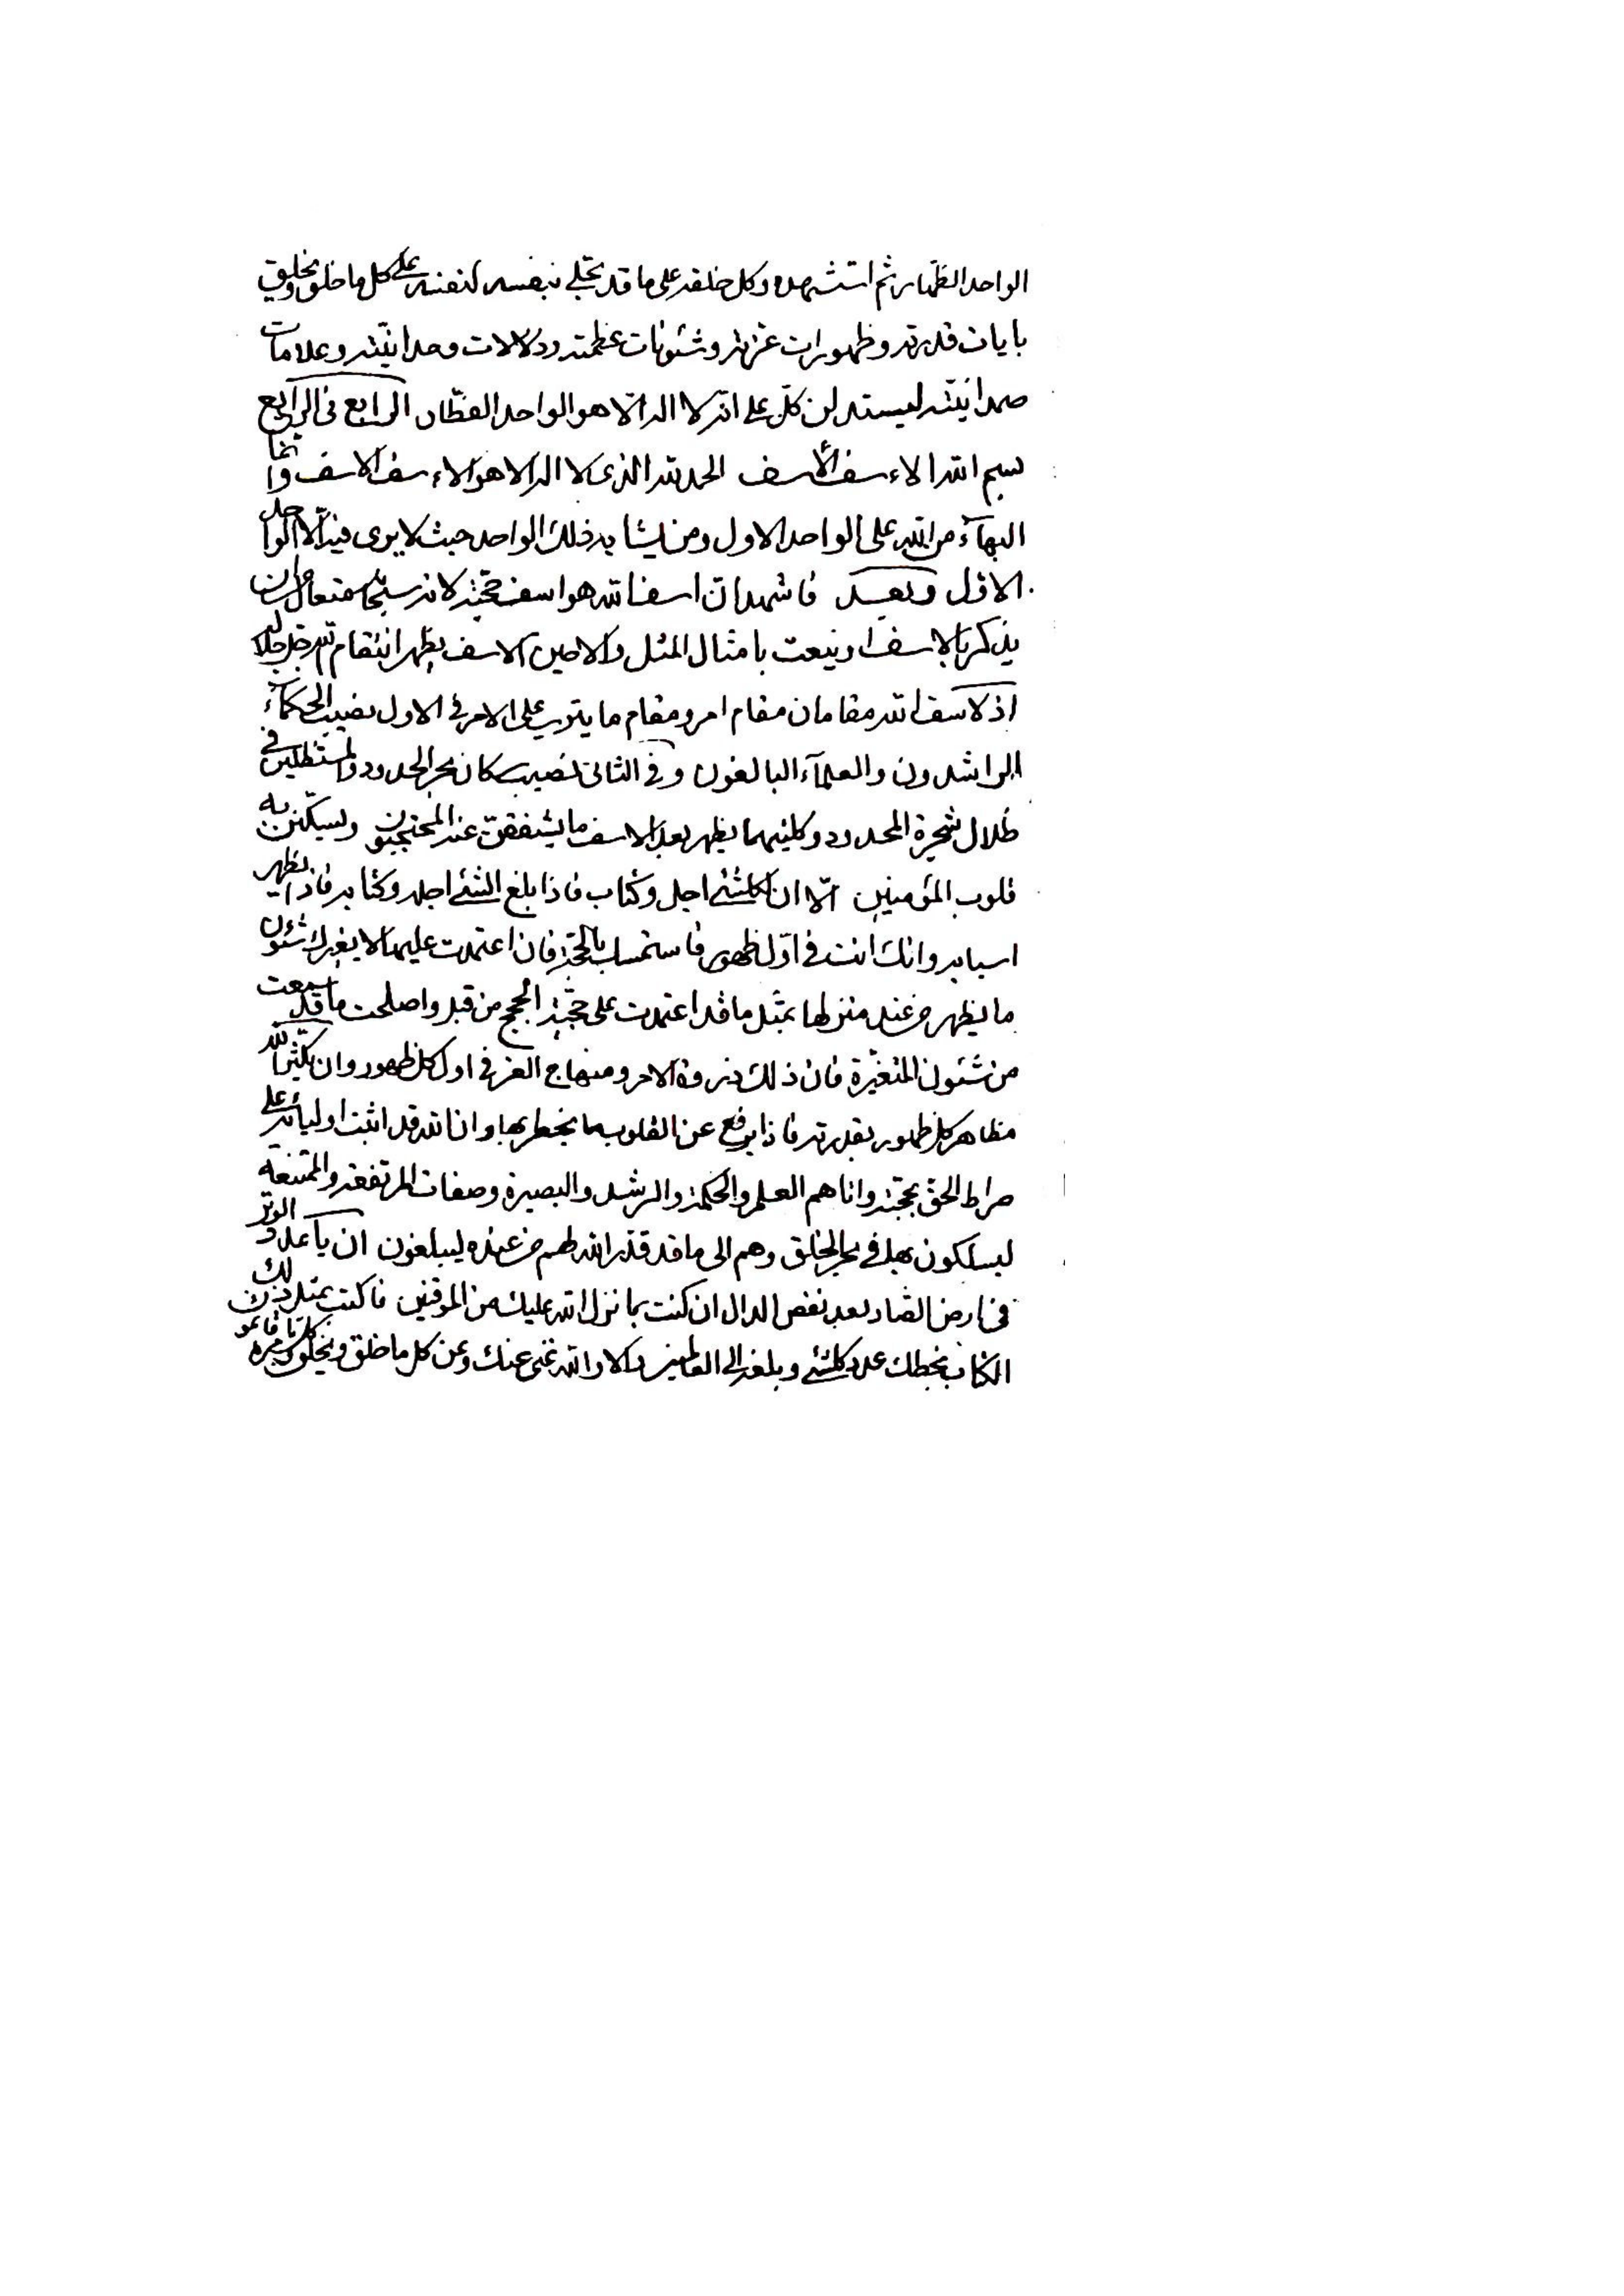 الواحد الظهار ثم استشهده وكل خلقه على ما قد تجلى بنفسه لنفسه على كل ما خلق ويخلق
بايات قدرته وظهورات عزته وشئونات عظمته ودلالات وحدانيته وعلامات
صمدانيته ليستدلن كل على انه لا اله الا هو الواحد الفظار الرابع فى الرابع
بسم الله الاءسف الأسف الحمد لله الذى لا اله الا هو الاءسف الاسف وانما
البهآء من الله على الواحد الاول ومن يشابه ذلك الواحد حيث لا يرى فيه الا الواحد
الاول وبعد فاشهد ان اسف الله هو اسف حجته لانه سبحانه متعال من ان
يذكر بالاسف او ينعت بامثال المثل والا حين الاسف يظهر انتقام الله جل جلاله
اذ لاسف الله مقامان مقام امر ومقام ما يترتب على الامر فى الاول نصيب الحكمآء
الراشدون والعلمآء البالغون وفى الثانى نصيب سكان بحر الحدود والمستظلين فى
ظلال شجرة المحدود وكليهما يظهر بعد الاسف ما يشفقن عند المحتجبون وليسكنن به
قلوب المؤمنين الا ان لكلشئ اجل وكتاب فاذا بلغ الشئ اجله وكتابه فاذا يظهر
اسبابه وانك انت فى اول ظهور فاستمسك بالحجة فان اعتمدت عليها لا يغيرك شئون
ما يظهر من عند منزلها بمثل ما قد اعتمدت على حجية الحجج من قبل واصلحت ما قد سمعت
من شئون المتغيرة فان ذلك ذروة الامر ومنهاج العز فى اول كل ظهور وان تكثيرا لله
مظاهر كل ظهور بقدرته فاذا يرفع عن القلوب ما يخطر بها وان الله قد اثبت اوليائه على
صراط الحق بحجته واتاهم العلم والحكمة والرشد والبصيرة وصفات المرتفعة والممتنعة
ليسلكون بها فى بحر الخلق وهم الى ما قد قدر الله لهم من عنده ليبلغون ان يا عدد الوتر
فى ارض الصاد بعد نقص الدال ان كنت بما نزل الله عليك من الموقنين فاكتب بمثل ذلك
الكتاب بخطك عدد كلشئ وبلغه الى العالمين والا والله غنى عنك وعن كل ما خلق ويخلق